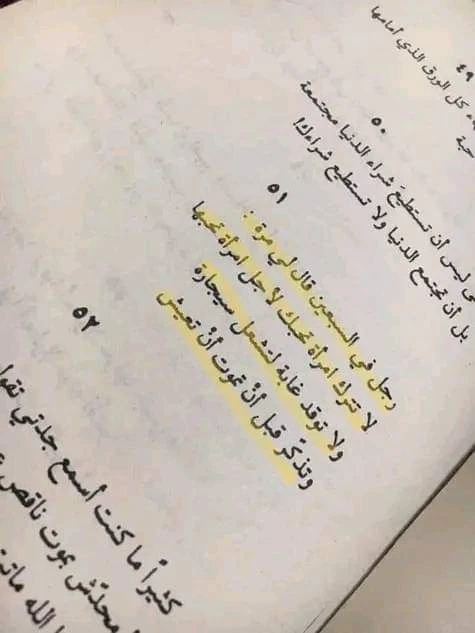 ٤٩
كل الورق الذي أمامها
حية
٥٠
ليس أن تستطيع شراء الدنيا مجتمعة
بل أن تجتمع الدنيا ولا تستطيع شراءك!
٥١
رجل في السبعين قال لي مرة..
لا تترك امرأة تحبك لأجل امرأة تحبها
ولا توقد غابة لتشعل سيجارة
وتذكّر قبل أنْ تموت أنْ تعيش
٥٢
كثيراً ما كنت أسمع جدتي تقول
محدّش بموت ناقص
الله